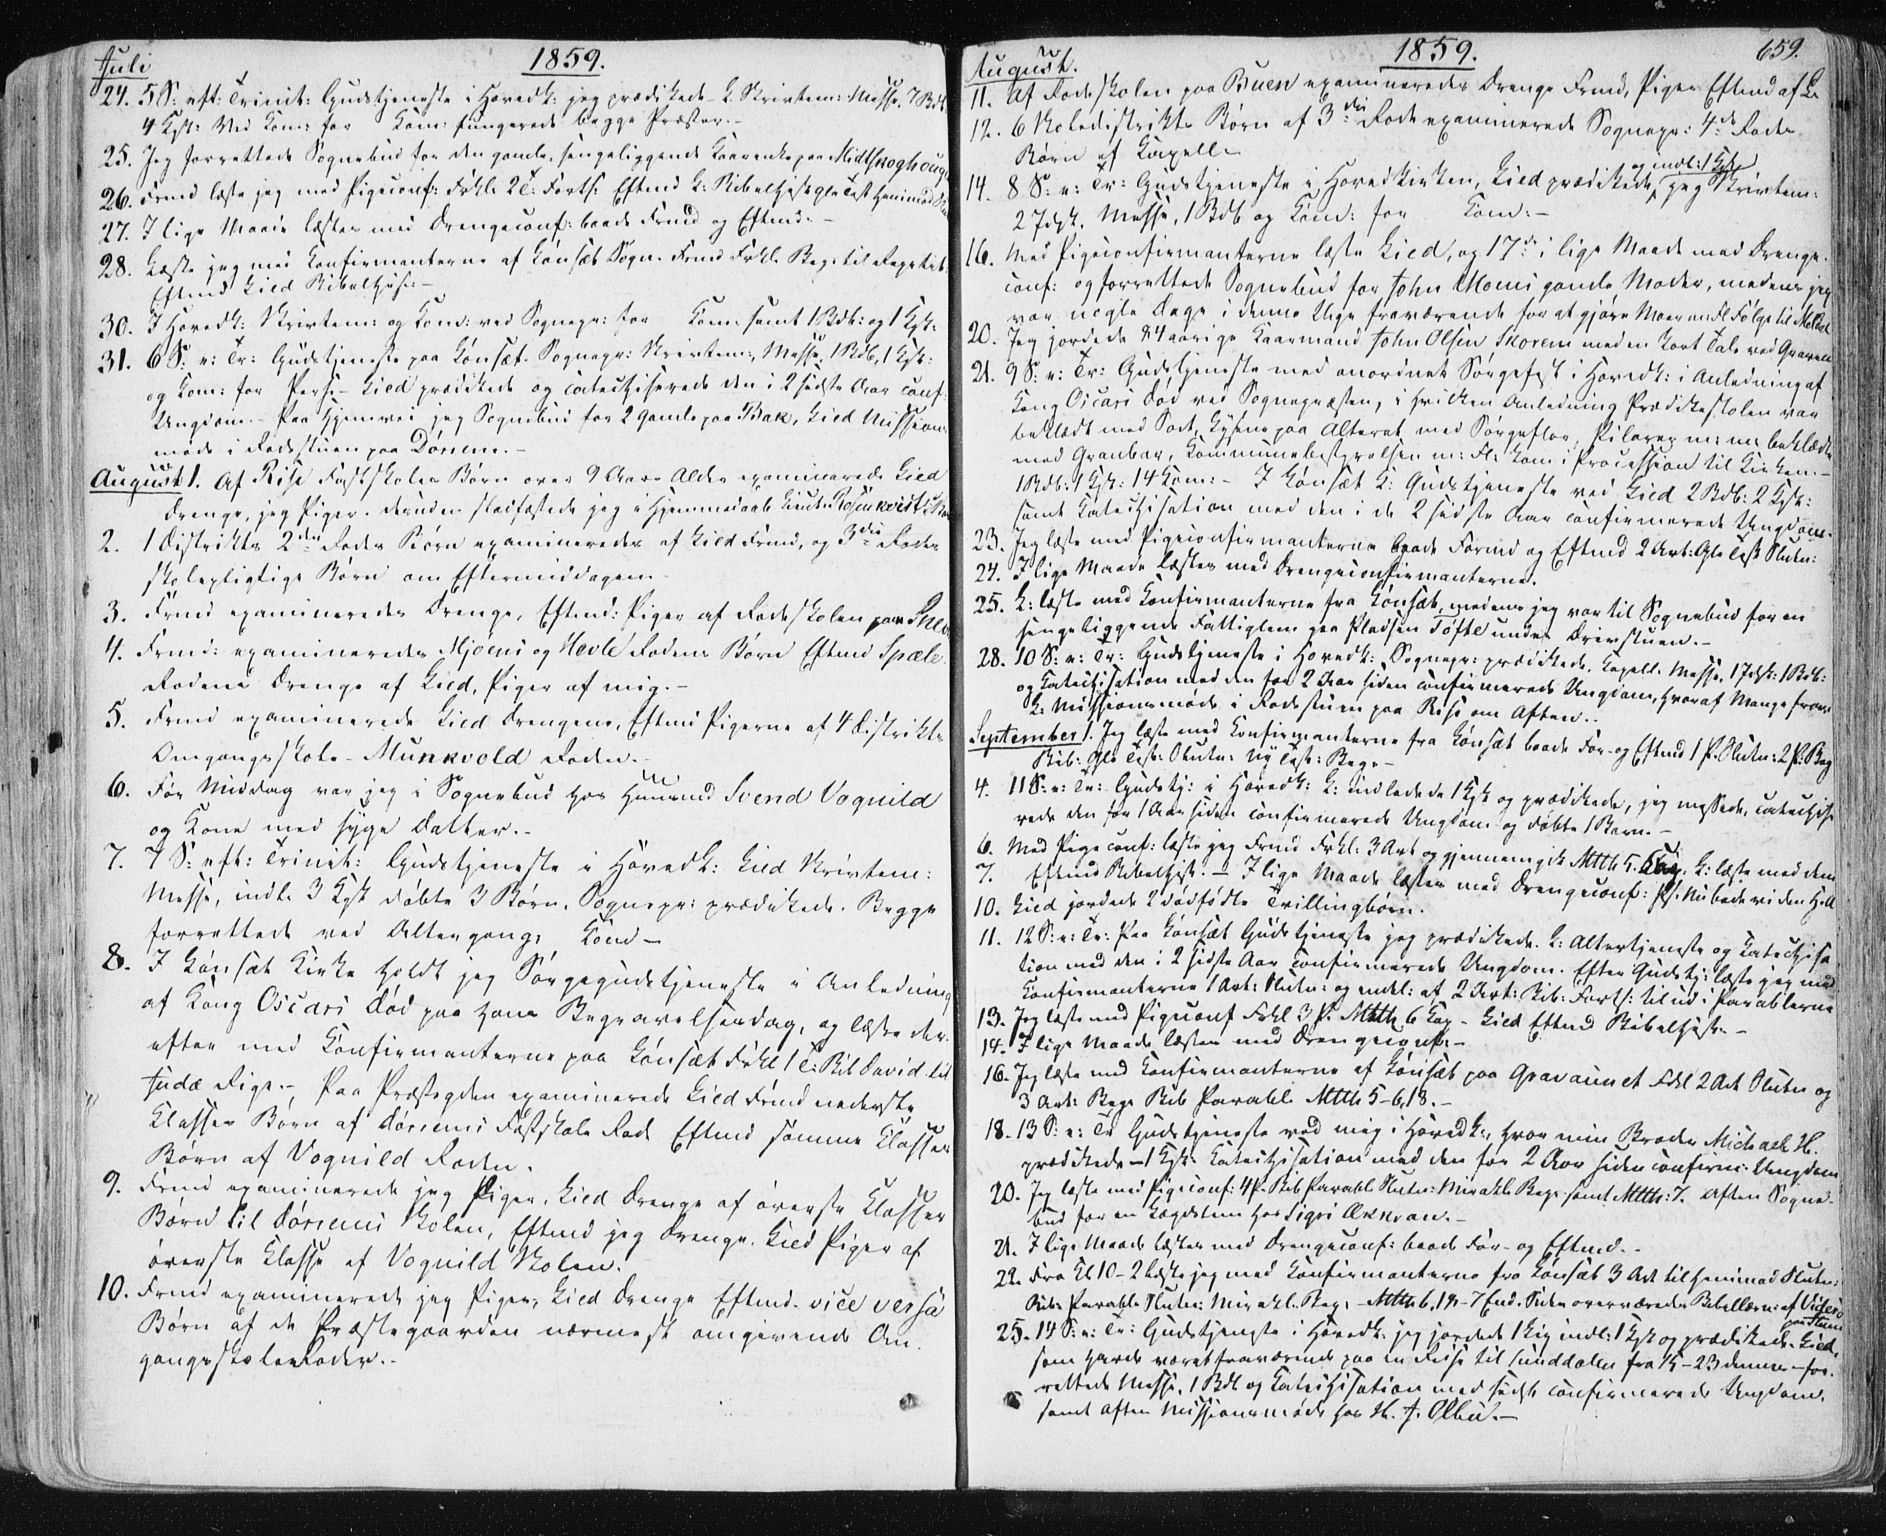 Juli
1859.
24. 5 S: eft: Trinit: Gudstjeneste i Hovedk: jeg prædikede. L. Skriftem: Messe. 7 Bdb
4 Kgk: Ved Kom: for Kom: fungerede begge Præster.-
25. Jeg forrettede Sognebud for den gamle, sengeliggende Kaarenke paa Midtskoghoug
26. Frmd læste jeg med Pigeconf: Frkl: 2 T: Forts: Eftmd L: Bibelhist
27. I lige Maade læstes med Drengeconf: baade Frmd og Eftmd.-
28. Læste jeg med Konfirmanterne af Lønsæt Sogn. Frmd Frkl. Beg. til
Eftmd Lied Bibelhist:-
30. I Hovedk: Skriftem: og Kom: ved Sognepr: for Kom: samt 1 Bdb: og 1 Kgk:
31. 6 S: e: Tr: Gudstjeneste paa Lønsæt. Sognepr: Skriftem: Messe, 1 Bdb, 1 Kgk:
og Kom: for Pers:- Lied prædikede og catechiserede den i 2 sidste Aar conf:
Ungdom.- Paa Hjemvei jeg Sognebud for 2 Gamle paa Bak, Lied Mission:
møde i Rodestuen paa Dørrem.-
August 1. Af Rise Fastskoles Børn over 9 Aars Alder examinerede Lied
Drenge, jeg Piger. Desuden stadfæstede jeg Hjemmedaab
2. 1 Distrikts 2den Rodes Børn examineredes af Lied Frmd, og 3die Rodes
skolepligtige Børn om Eftermiddagen.
3. Frmd examineredes Drenge, Eftmd: Piger af Rodeskolen paa
4. Frmd: examineredes Mjøeni og Hevle Rodens Børn Eftmd Spæle
Rodens Drenge af Lied, Piger af mig.-
5. Frmd examinerede Lied Drengene, Eftmd Pigerne af 4 Distrikts
Omgangsskole- Munkvold Roden.-
6. Før Middag var jeg i Sognebud hos Huusmd Svend Vognild
og Kone med syge Datter.-
7. 7 S: eft: Trinit: Gudstjeneste i Hovedk: Lied Skriftem:
Messe, indl. 3 Kgk døbte 3 Børn, Sognepr: prædikede. Begge
forrettede ved Altergang, Kom-
8. I Lønsæt Kirke holdt jeg Sørgegudstjeneste i Anledning
af Kong Oscars Død paa hans Begravelsesdag, og læste der-
efter med Konfirmanterne paa Lønsæt Frkl 1 T: Bib David til
Judæ Rige.- Paa Præstegden examinerede Lied Frmd nederste
Klasses Børn af Dørrems Fastskole Rode Eftmd samme Klasses
Børn af Vognild Roden.
9. Frmd examinerede jeg Piger, Lied Drenge af øverste Klasses
Børn til Dørrems Skolen, Eftmd jeg Drenge, Lied Piger af
øverste Klasse af Vognild Skolen.
10. Frmd examinerede jeg Piger, Lied Drenge Eftmd. vice versa
Børn af de Præstegaarden nærmest omgivende Om-
gangsskoleRoder.-
August.
1859.
659.
11. Af Rodeskolen paa Buen examineredes Drenge Frmd, Piger Eftmd af L.
12. 6 Skoledistrikts Børn af 3die Rode examinerede Sognepr: 4de Rodes
Børn af Kapell.
14. 8 S: e: Tr: Gudstjeneste i Hovedkirken, Lied prædikede og indl: 1 Kgk, jeg Skriftem:
2 Jdgk. Messe, 1 Bdb og Kom: for Kom:-
16. Med Pigeconfirmanterne læste Lied, og 17de i lige Maade med Drenge-
conf: og forrettede Sognebud for John Moeni gamle Moder, medens jeg
var nogle Dage i denne Uge fraværende for at gjøre
20. Jeg jordede 84 aarige Kaarmand John Olsen Skorem med en kort Tale ved Graven
21. 9 S: e: Tr: Gudstjeneste med anordnet Sørgefest i Hovedk: i Anledning af
Kong Oscars Død ved Sognepræsten, i hvilken Anledning Prædikestolen var
beklædt med Sort, Lysene paa Alteret med Sørgeflor, Pilarer m: m: beklædte
med Granbar, Kommunebestyrelsen m: Fl: kom i Procession til Kirken.-
1 Bdb: 1 Kgk: 14 Kom:- I Lønsæt K: Gudstjeneste ved Lied 2 Bdb: 2 Kgk:
samt Katechisation med den i de 2 sidste Aar confirmerede Ungdom.
23. Jeg læste med Pigeconfirmanterne baade Formd og Eftmd 2 Art: Gle Test Slutn:
24. I lige Maade læstes med Drengeconfirmanterne.
25. L: læste med Konfirmanterne fra Lønsæt, medens jeg var til Sognebud for en
sengeliggende Fattiglem paa Pladsen Tøfte under Drivstuen.-
28. 10 S: e: Tr: Gudstjeneste i Hovedk: Sognepr: prædikede, Kapell: Messe, 1 Jdgk: 1 Bdb:
og Katechisation med den for 2 Aar siden confirmerede Ungdom, hvoraf Mange
L: Missionsmøde i Rodestuen paa Rise om Aften.-
September 1. Jeg læste med Konfirmanterne fra Lønsæt baade For- og Eftmd 1 P. Slutn: 2 P: Beg
Bib: Gle Test: Slutn: Ny Test: Beg.-
4. 11 S: e: Tr: Gudstj: i Hovedk: L: indledede 1 Kgk og prædikede, jeg messede, catechise-
rede den for 1 Aar siden confirmerede Ungdom og døbte 1 Barn.-
6. Med Pigeconf: læste jeg Frmd Frkl: 3 Art og gjennemgik Mtth 5. Cap. L: læste med dem
7. Eftmd Bibelhist:- I lige Maade læstes med Drengeconf:
10. Lied jordede 2 dødfødte Tvillingbørn.
11. 12 S: e: Tr: Paa Lønsæt Gudstjeneste jeg prædikede. L: Altertjeneste og Katechisa-
tion med den i 2 sidste Aar confirmerede Ungdom. Efter Gudstj: læste jeg med
Konfirmanterne 1 Art: Slutn: og endel: af 2 Art: Bib: Forts: til ud i Parablerne
13. Jeg læste med Pigeconf Frkl 3 P: Mtth 6 Cap- Lied Eftmd Bibelhist:-
14. I lige Maade læstes med Drengeconf:-
16. Jeg læste med Konfirmanterne af Lønsæt paa Gravaunet Frkl 2 Art Slutn og
3 Art: Beg. Bib Parabl. Mtth 5-6,18.-
18. 13 S: e: Tr Gudstjeneste ved mig i Hovedk:, hvor min Broder Michael H.
prædikede-1 Kgk. Katechisation med den for 2 Aar siden confirm: Ungdom
20. Jeg læste med Pigeconf: 4 P. Bib Parabl Slutn: Mirakl. Beg. samt Mtth: 7. Aften Sogne-
bud for en Lægdslem hos Sigri
21. I lige Maade læstes med Drengeconf: baade For- og Eftmd.-
22. Fra Kl 10-2 læste jeg med Konfirmanterne fra Lønsæt 3 Art
Bib: Parabl Slutn: Mirakl. Beg,- Mtth 6,18-7 End.
25. 14 S: e: Tr: Gudstjeneste i Hovedk: jeg jordede 1 Lig indl: 1 Kgk og prædikede. Lied,
som havde været fraværende paa en Reise til Sunddalen fra 15-23 dennes- for-
rettede Messe, 1 Bdb og Katechisation med sidst confirmerede Ungdom,
samt Aften Missionsmøde hos H. J. Olbu.-